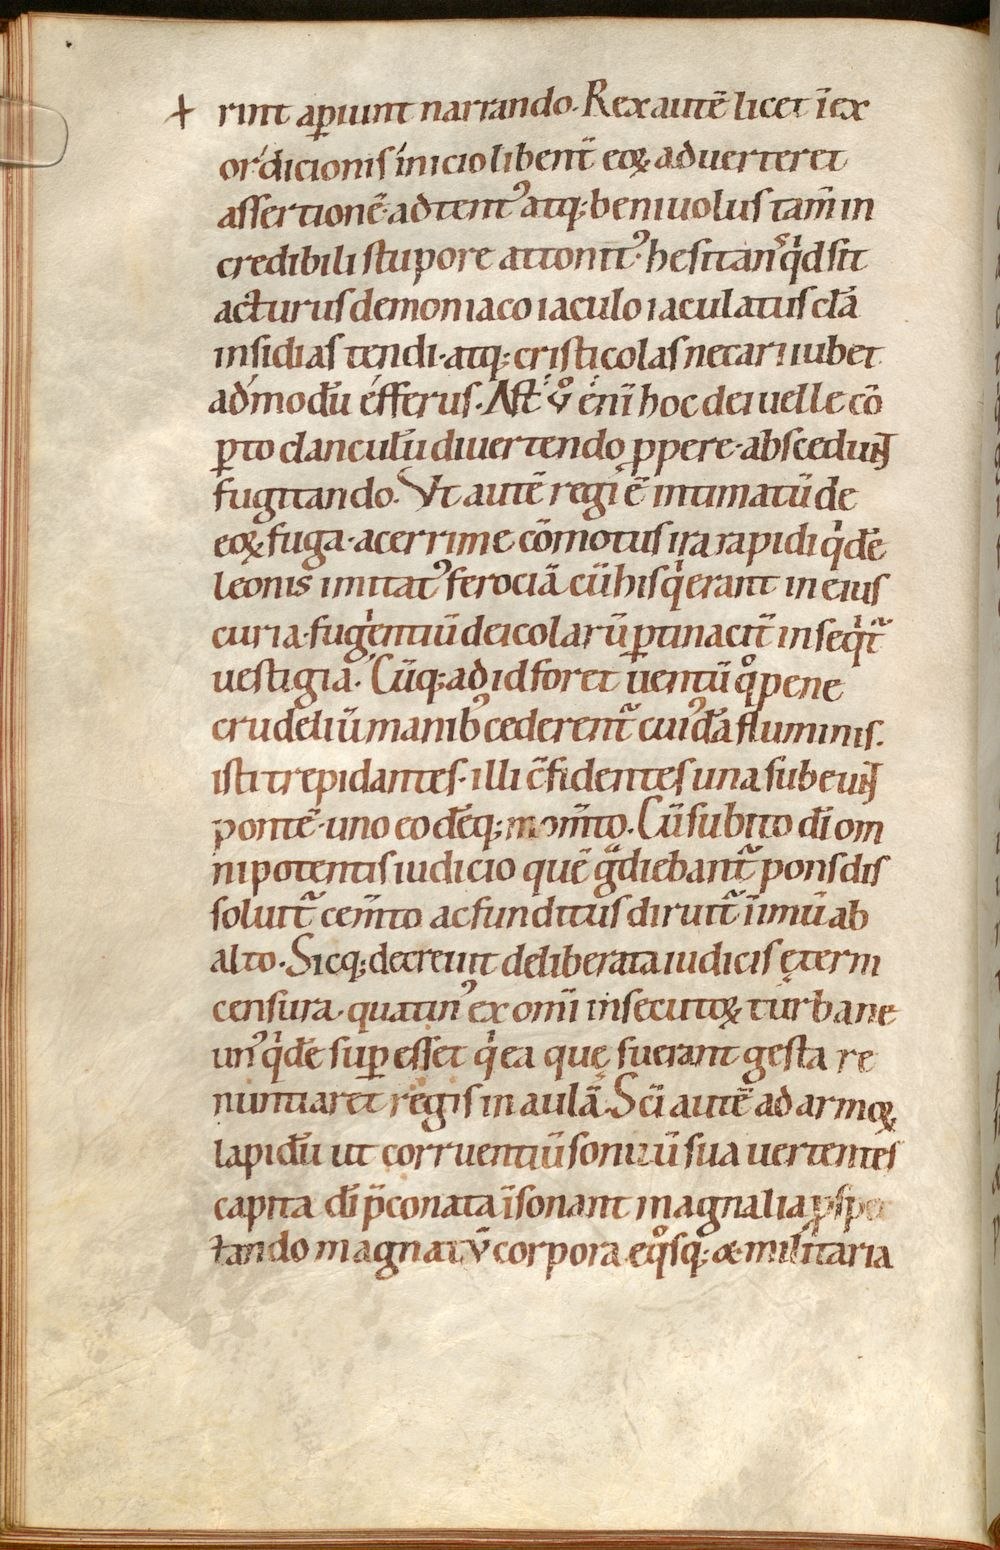 + rint aꝑiunt narrando. Rex autē licet īex
ordicionis inicio libent̄ eoꝝ aduerteret
assertionē· adtentꝰ atq; beniuolus tam̄ in
credibili stupore attonitꝰ· hesitans qͥd sit
acturus demoniaco iaculo iaculatus clā
insidias tendi· atq; cristicolas necari iubet
admodū efferus. Ast ů enī hoc dei uelle cō
ꝑto clanculū diuertendo ꝓpere· abscedunt
fugitando. Vt autē regi ē intimatū de
eoꝝ fuga· acerrime cōmotus ira rapidi qͥdē
leonis imitatꝰ ferociā cū his qͥ erant in eius
curia· fugientiū deicolarū ꝑtinacit̄ inseqͥt᷑
uestigia. Cūq; ad id foret uentū qͦ pene
crudeliū manibꝰ cederent᷑ cuiꝰdā fluminis.
isti trepidantes· illi c̄fidentes una subeunt
pontē· uno eodēq; mom̄to. Cū subito dī om
nipotentis iudicio quē gͣdiebant᷑ pons dis
soluit᷑ cem̄to ac funditus diruit᷑ ī imū ab
alto. Sicq; decreuit deliberata iudicis ęterni
censura· quatinꝰ ex omī insecutoꝝ turba ne
unꝰ qͥdē suꝑesset qͥ ea quę fuerant gesta re
nuntiaret regis in aulā. Scī autē ad armoꝝ
lapidū ut corruentiū sonitū sua uertentes
capita dī p̄conata īsonant magnalia ꝓspec
tando magnatū corpora eqͦsq; & militaria